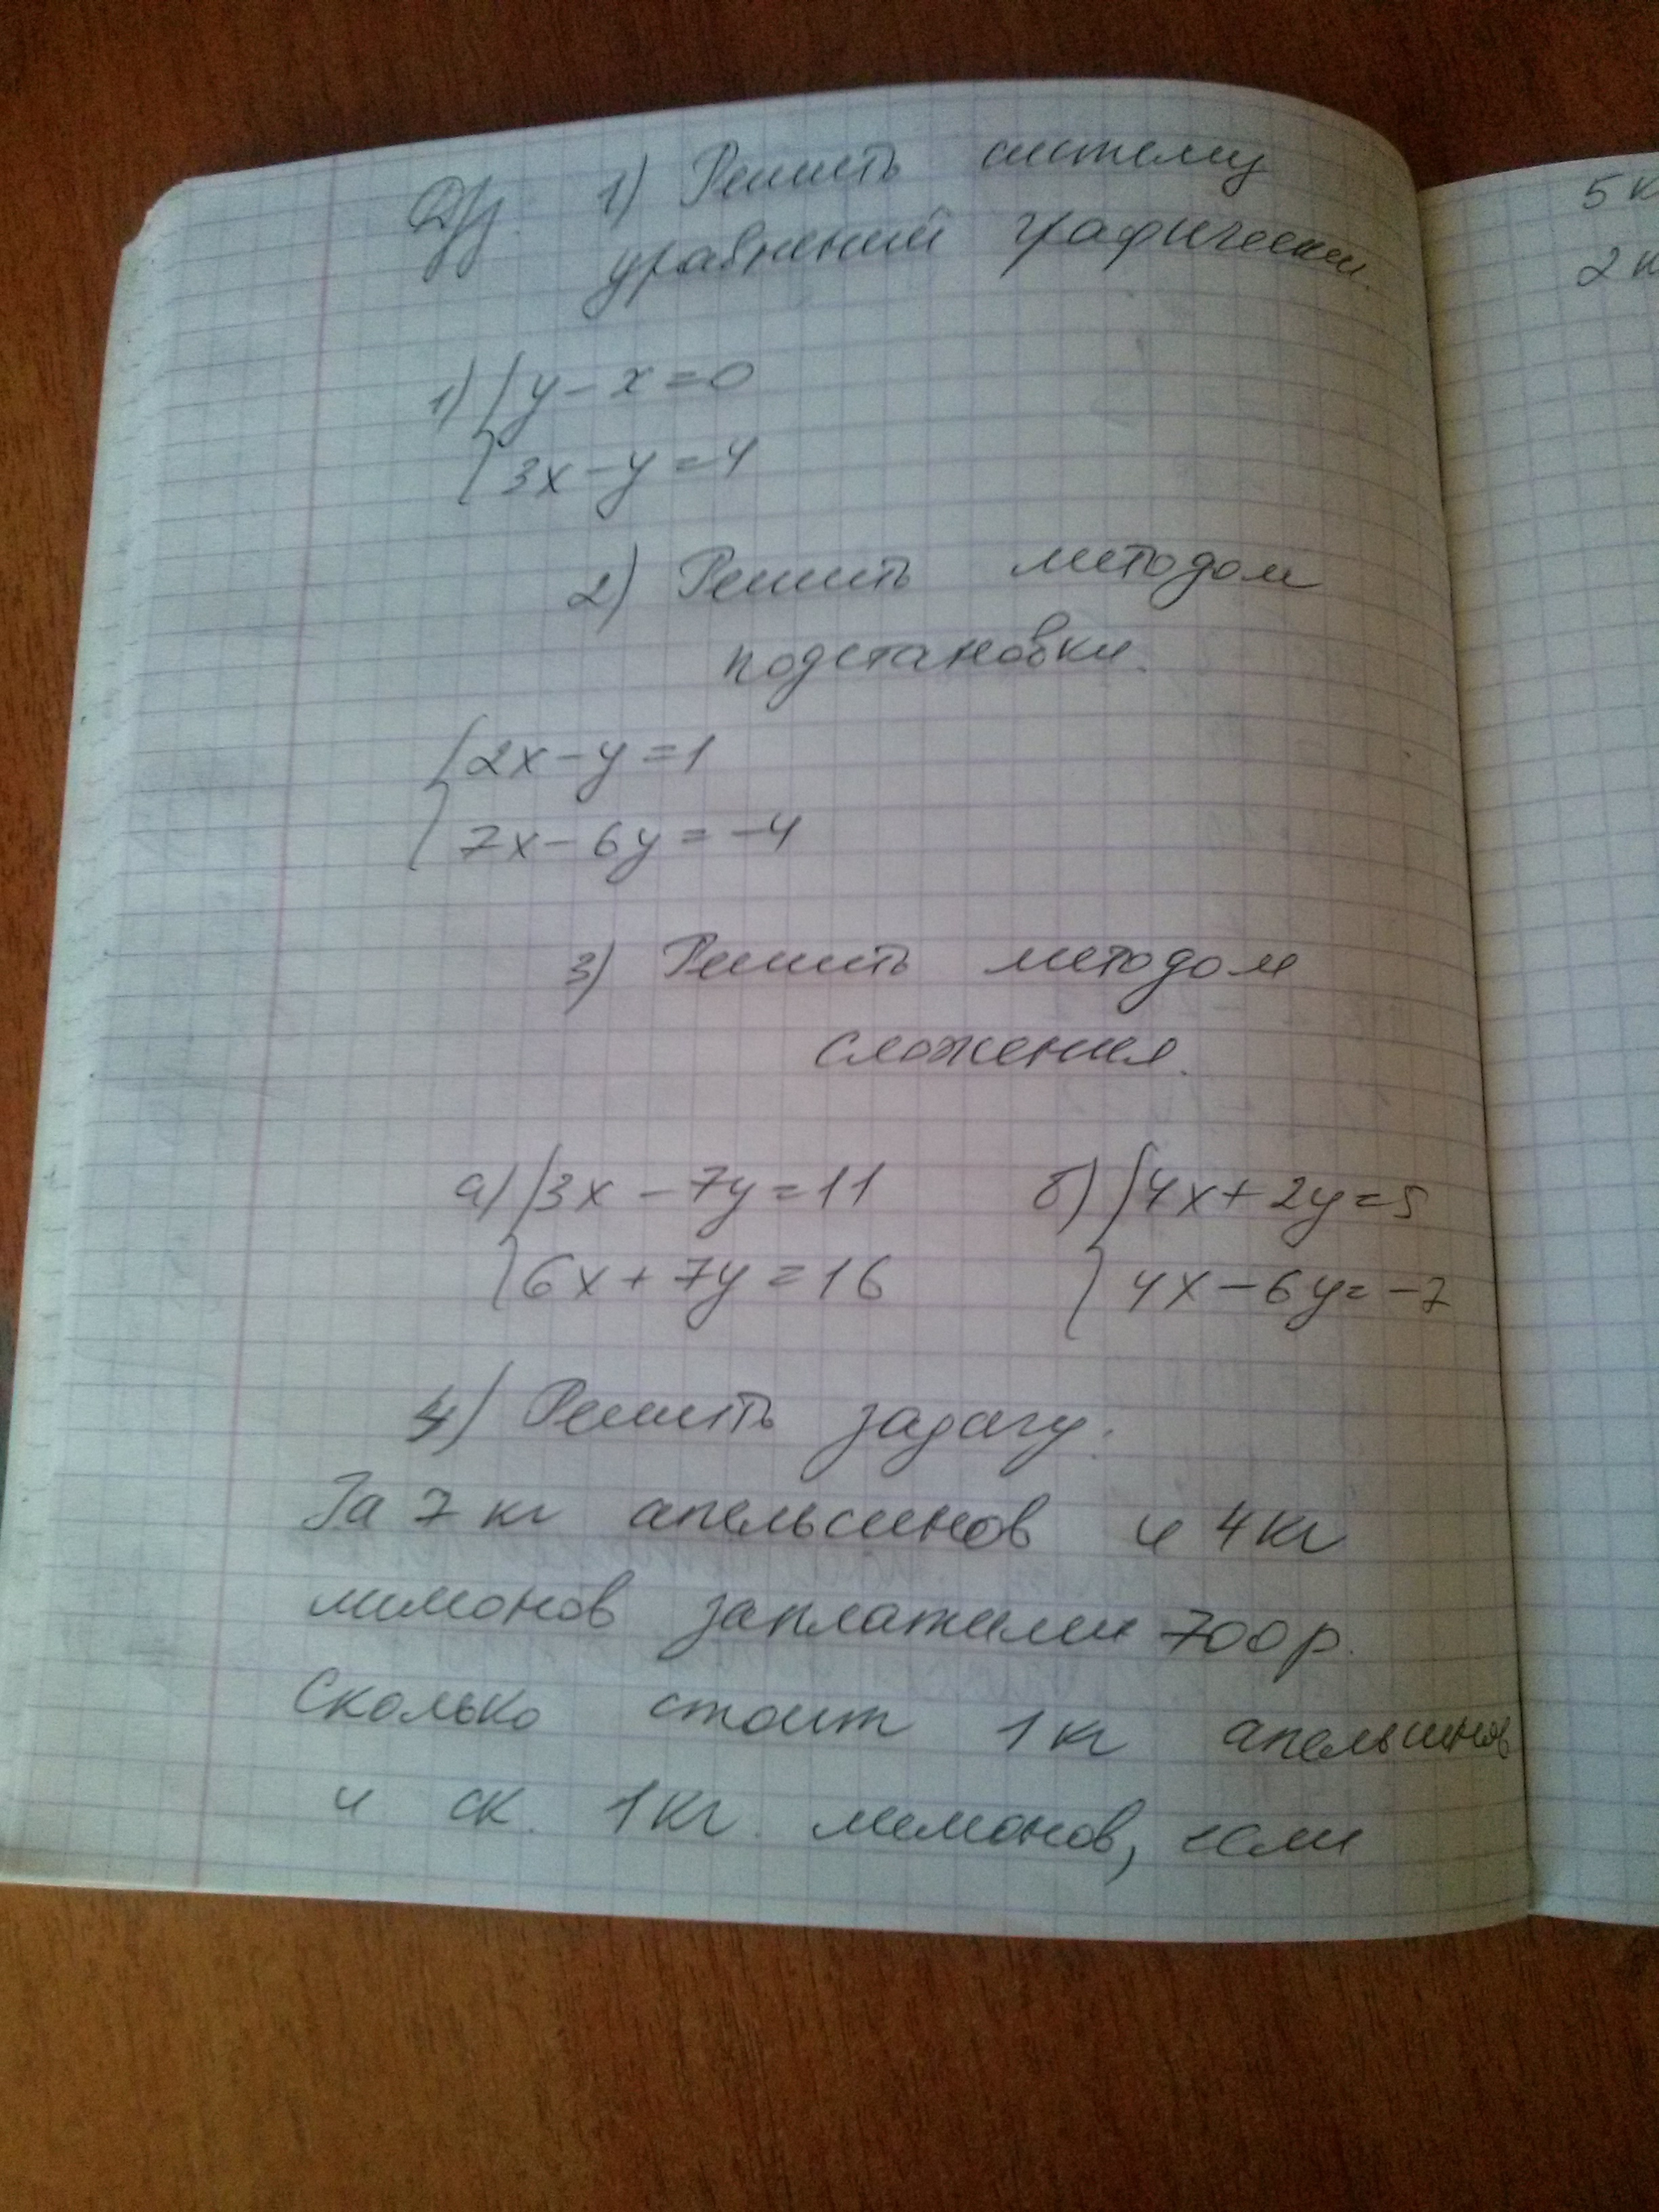 Д/з. 1) Решить систему
уравнений графически.
1) { y - x = 0
3x - y = 4
2) Решить методом
подстановки.
{ 2x - y = 1
7x - 6y = -4
3) Решить методом
сложения.
а) { 3x - 7y = 11 б) { 4x + 2y = 5
6x + 7y = 16 4x - 6y = -7
4) Решить задачу:
За 7 кг апельсинов и 4 кг
лимонов заплатили 700 р.
Сколько стоит 1 кг апельсинов
и ск. 1 кг. лимонов, если
5 к
2 к